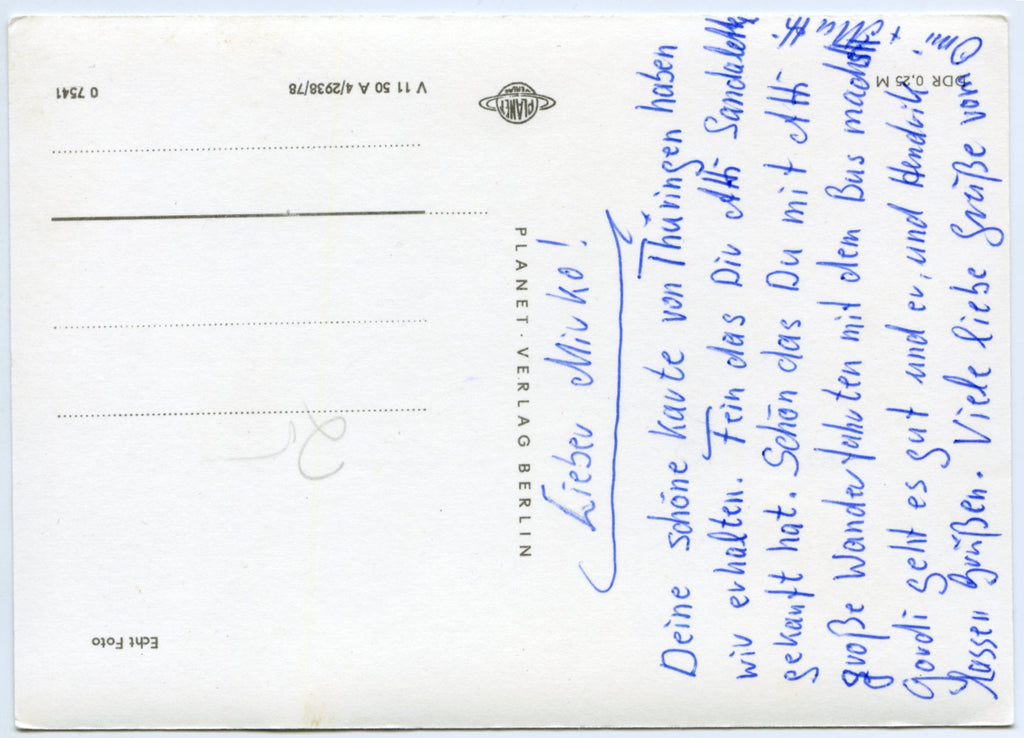 Lieber Mirko!
Deine schöne Karte von Thüringen haben
wir erhalten. Fein das Dir Atti Sandalette
gekauft hat. Schön das Du mit Atti
große Wanderfahrten mit dem Bus machst.
Gordi geht es gut und er, und Hendrik
lassen Grüßen. Viele liebe Grüße von Omi
+ Mutti
PLANET · VERLAG BERLIN
PLANET
VERLAG
V 11 50 A 4/2938/78
0 7541
Echt Foto
DDR 0,25 M
2,-